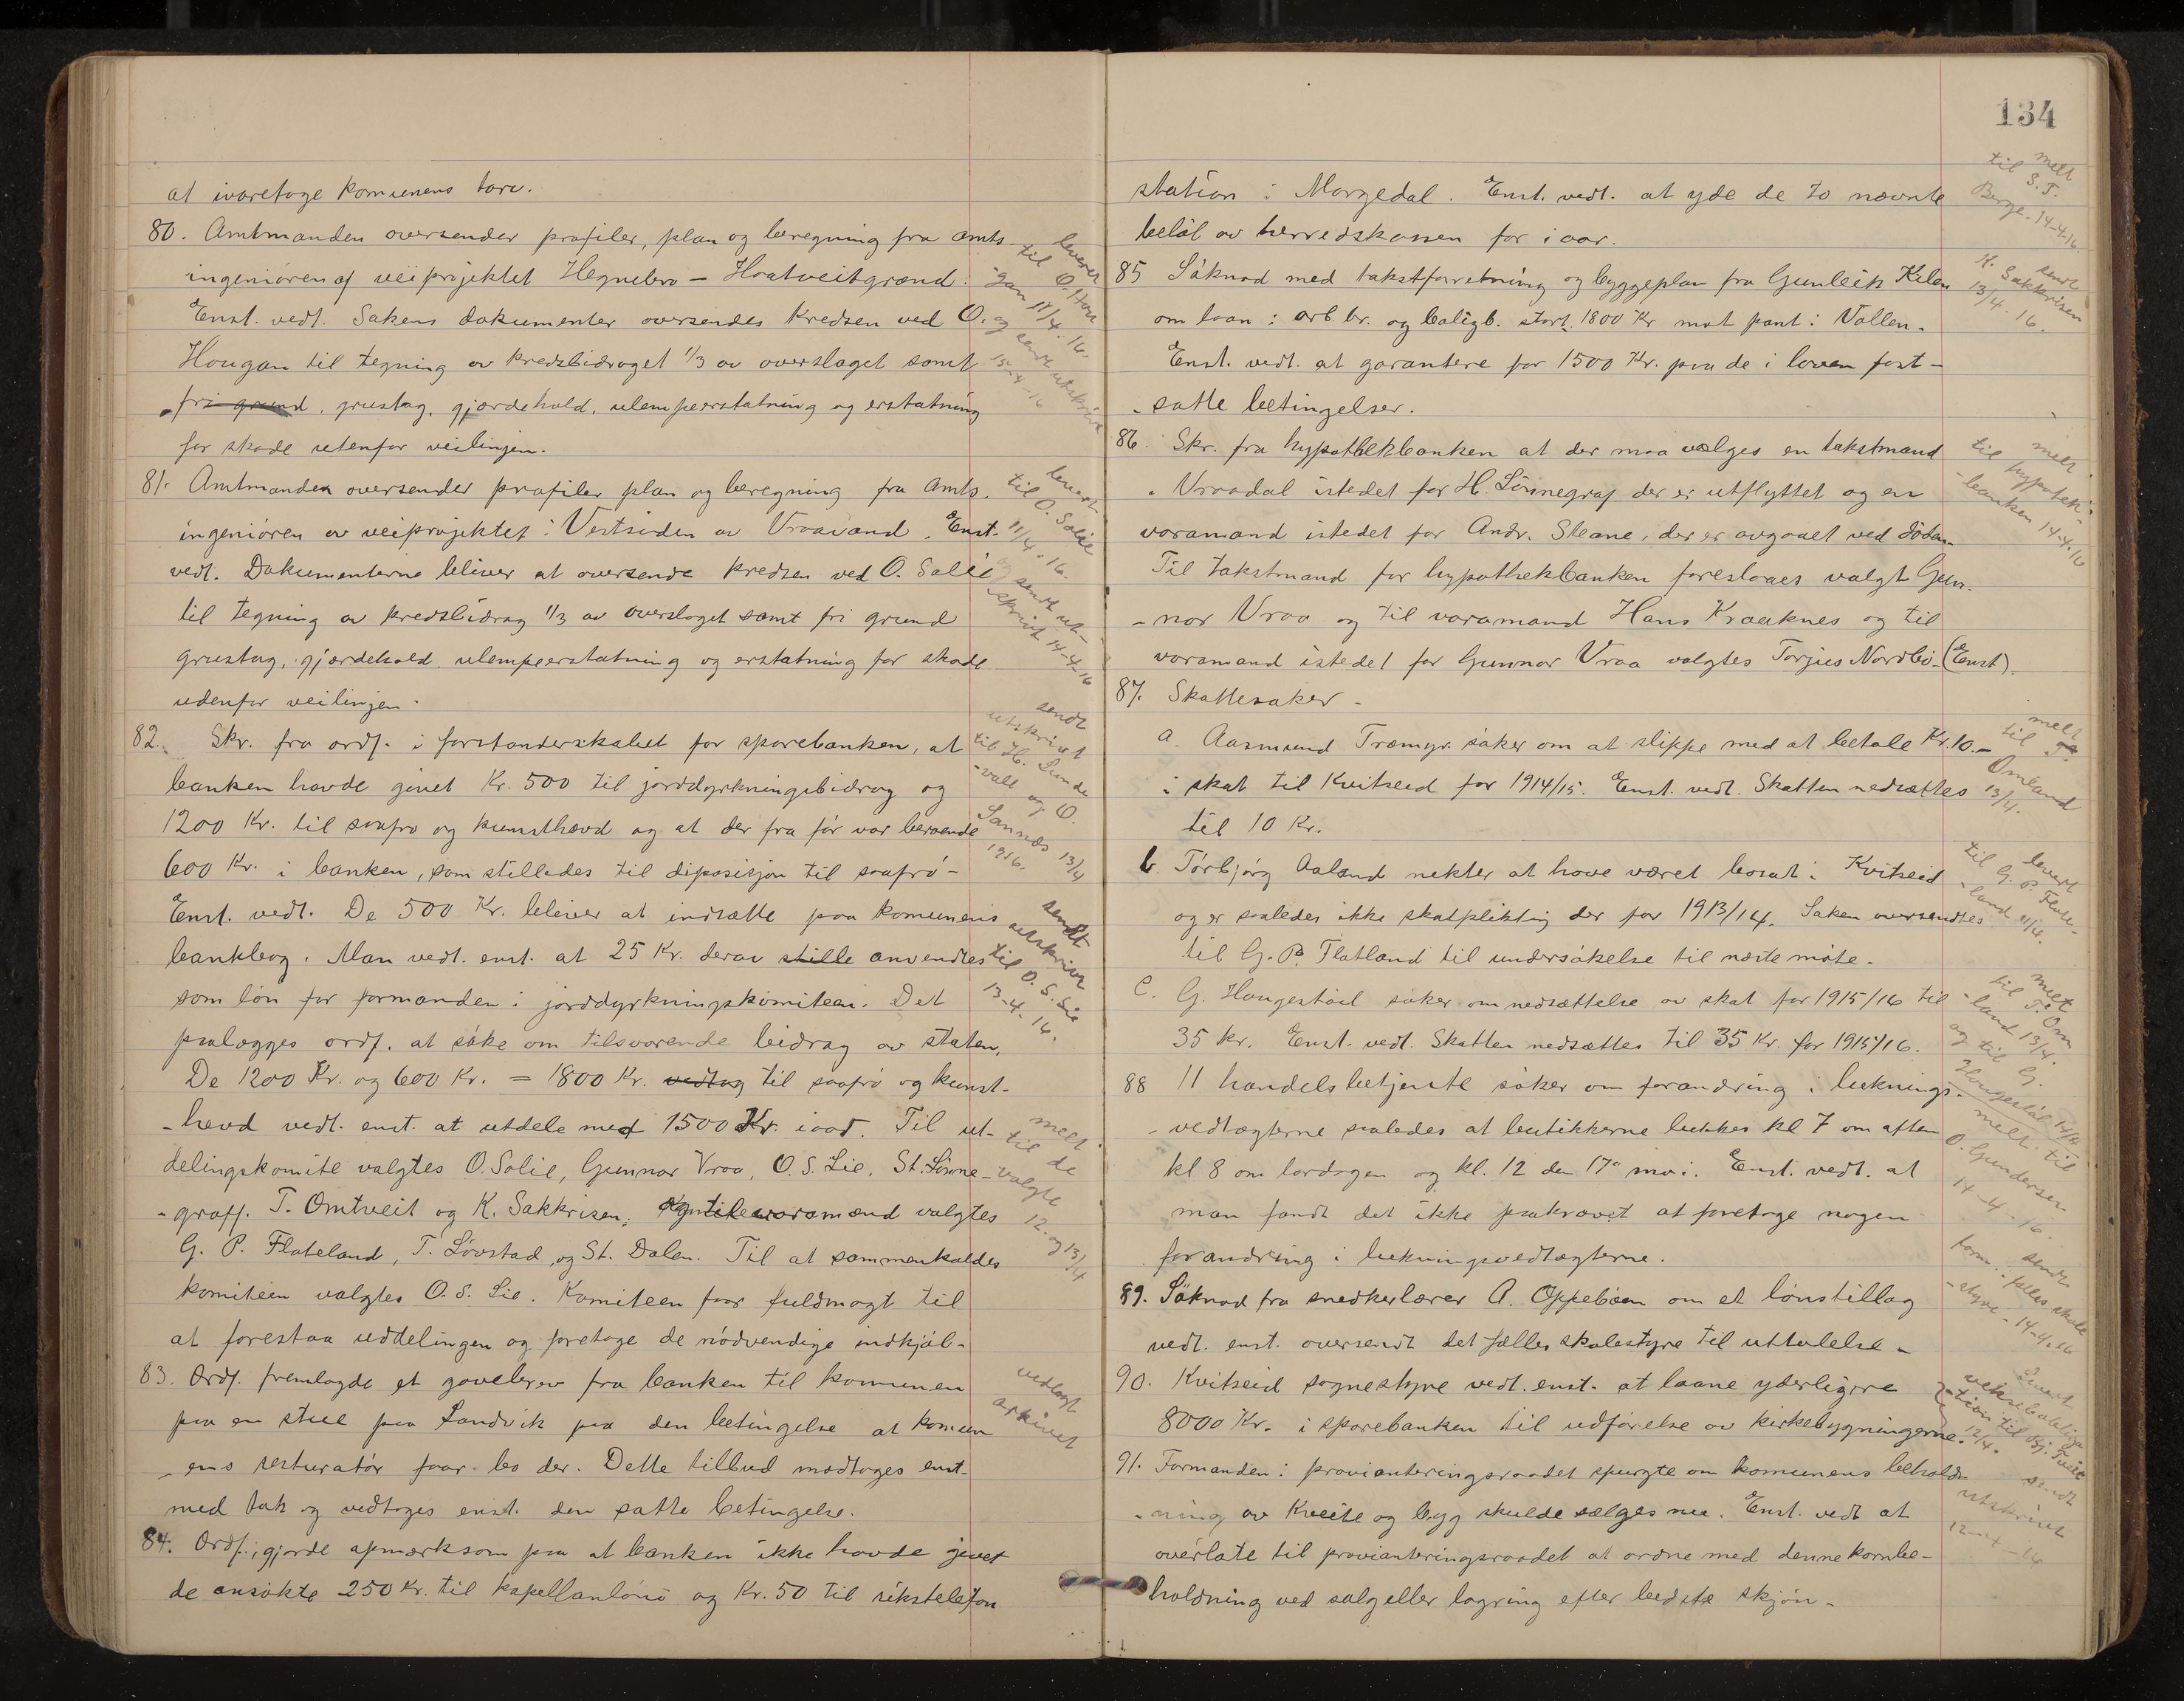 at ivaretage komunens tarv.
80. Amtmanden oversender profiler, plan og beregning fra amts-
ingeniøren af veiprojektet Hegnebro - Hoatveitgrænd.
Enst. vedt. Sakens dokumenter oversendes kredsen ved O.
Hougan til tegning av kredsbidraget 1/3 av overslaget samt
fri grund, grustag, gjærdehold, ulemperstatning og erstatning
for skade utenfor veilinjen.
levert
til O. Hou
-gan 11/4. 16.
og sendt utskrivt
15-4-16
81. Amtmanden oversender profiler plan og beregning fra Amts.
ingeniøren av veiprojektet i Vestsiden av Vraavand. Enst.
vedt. Dokumenterne bliver at oversende kredsen ved O. Solie
til tegning av kredsbidrag 1/3 av overslaget samt fri grund
grustag, gjærdehold ulempeerstatning og erstatning for skade
udenfor veilinjen.
levert
til O. Solie
11/4. 16.
og sendt ut-
skrivt 14-4-16
82. Skr. fra ordf. i forstanderskabet for sparebanken, at
banken havde givet Kr. 500 til jorddyrkningsbidrag og
1200 Kr. til saafrø og kunsthævd og at der fra før var beroende
600 Kr. i banken, som stilledes til diposisjon til saafrø-
Enst. vedt. De 500 Kr. bliver at indsætte paa komunens
bankbog. Man vedt. enst. at 25 Kr. derav stille anvendtes
som løn for formanden i jorddyrkningskomiteen. Det
paalægges ordf. at søke om tilsvarende bidrag av staten,
De 1200 Kr. og 600 Kr. = 1800 Kr. vedtag til saafrø og kunst-
-hevd vedt. enst. at utdele med 1500 Kr. iaar. Til ut-
delingskomite valgtes O. Solie, Gunnar Vraa, O. S. Lie, St. Lønne-
-graff. T. Omtveit og K. Sakkrisen, Og til varamænd valgtes
G. P. Flateland, T. Løvstad, og St. Dalen. Til at sammenkaldes
komiteen valgtes O. S. Lie. Komiteen faar fuldmagt til
at forestaa uddelingen og foretage de nødvendige indkjøb-
sendt
utskrivt
til H. Lunde
-vall og O.
Sannæs 13/4
1916.
sendt
utskrivt
til O. S. Lie
13-4-16.
melt
til de
valgte
12. og 13/4
83. Ordf. fremlagde et gavebrev fra banken til komunen
paa en stue paa Sandvik paa den betingelse at komun
-ens resturatør faar bo der. Dette tilbud modtoges enst.
med tak og vedtoges enst. den satte betingelse.
vedlagt
arkivet
84. Ordf. gjorde opmærksom paa at banken ikke havde givet
de ansøkte 250 Kr. til kapellanlønn og Kr. 50 til rikstelefon
134
station i Morgedal. Enst. vedt. at yde de to nævnte
beløb av herredskassen for iaar.
melt
til S. T.
Berge. 14-4-16.
85 Søknad med takstforretning og byggeplan fra Gunleik Kilen
om laan i arb. br. og boligb. stort 1800 Kr mot pant i Vallen.
Enst. vedt. at garantere for 1500 Kr. paa de i loven fast-
-satte betingelser.
sendt
K. Sakkrisen
13/4. 16.
86. Skr. fra hypothekbanken at der maa vælges en takstmand
i Vraadal istedet for H. Lønnegraf der er utflyttet og en
varamand istedet for Andr. Steane, der er avgaaet ved døden.
Til takstmand for hypothekbanken foreslaaes valgt Gun-
-nar Vraa og til varamand Hans Kraaknes og til
varamand istedet for Gunnar Vraa valgtes Torjus Nordbø. (Enst).
melt
til hypotek-
-banken 14-4-16
87. Skattesaker.
a. Aasmund Træmyr søker om at slippe med at betale Kr. 10.-
i skat til Kvitseid for 1914/15. Enst. vedt. Skatten nedsættes
til 10 Kr.
melt
til T.
Omland
13/4.
b. Torbjørg Aaland nekter at have været bosat i Kvitseid
og er saaledes ikke skatpliktig der for 1913/14. Saken oversendtes
til G. P. Flatland til undersøkelse til næste møte.
levert
til G. P. Flate-
-land 11/4.
c. G. Haugestøil søker om nedsættelse av skat for 1915/16 til
35 kr. Enst. vedt. Skatten nedsættes til 35 Kr. for 1915/16.
melt
til T. Om
-land 13/4.
og til G.
Haugestøl 14/4
88 11 handelsbetjente søker om forandring i luknings-
-vedtægterne saaledes at butikkerne lukkes kl 7 om aften
kl 8 om lørdagen og kl. 12 den 17de mai. Enst. vedt. at
man fandt det ikke paakrævet at foretage nogen
forandring i lukningsvedtægterne.
melt til
O. Gundersen
14-4-16.
89. Søknad fra snedkerlærer A. Oppebøen om et lønstillæg
vedt. enst. oversendt det fælles skolestyre til uttalelse.
sendt
form. i fælles skole
-styre - 14-4-16
90. Kvitseid sognestyre vedt. enst. at laane yderligere
8000 Kr. i sparebanken til udførelse av kirkebygningerne.
til Bj. Tveit
12/4.
91. Formanden i provianteringsraadet spurgte om komunens behold-
-ning av Kveite og byg skulde sælges nu. Enst. vedt at
overlate til provianteringsraadet at ordne med denne kornbe-
holdning ved salg eller lagring efter bedste skjøn.
sendt
utskrivt
12-4-16